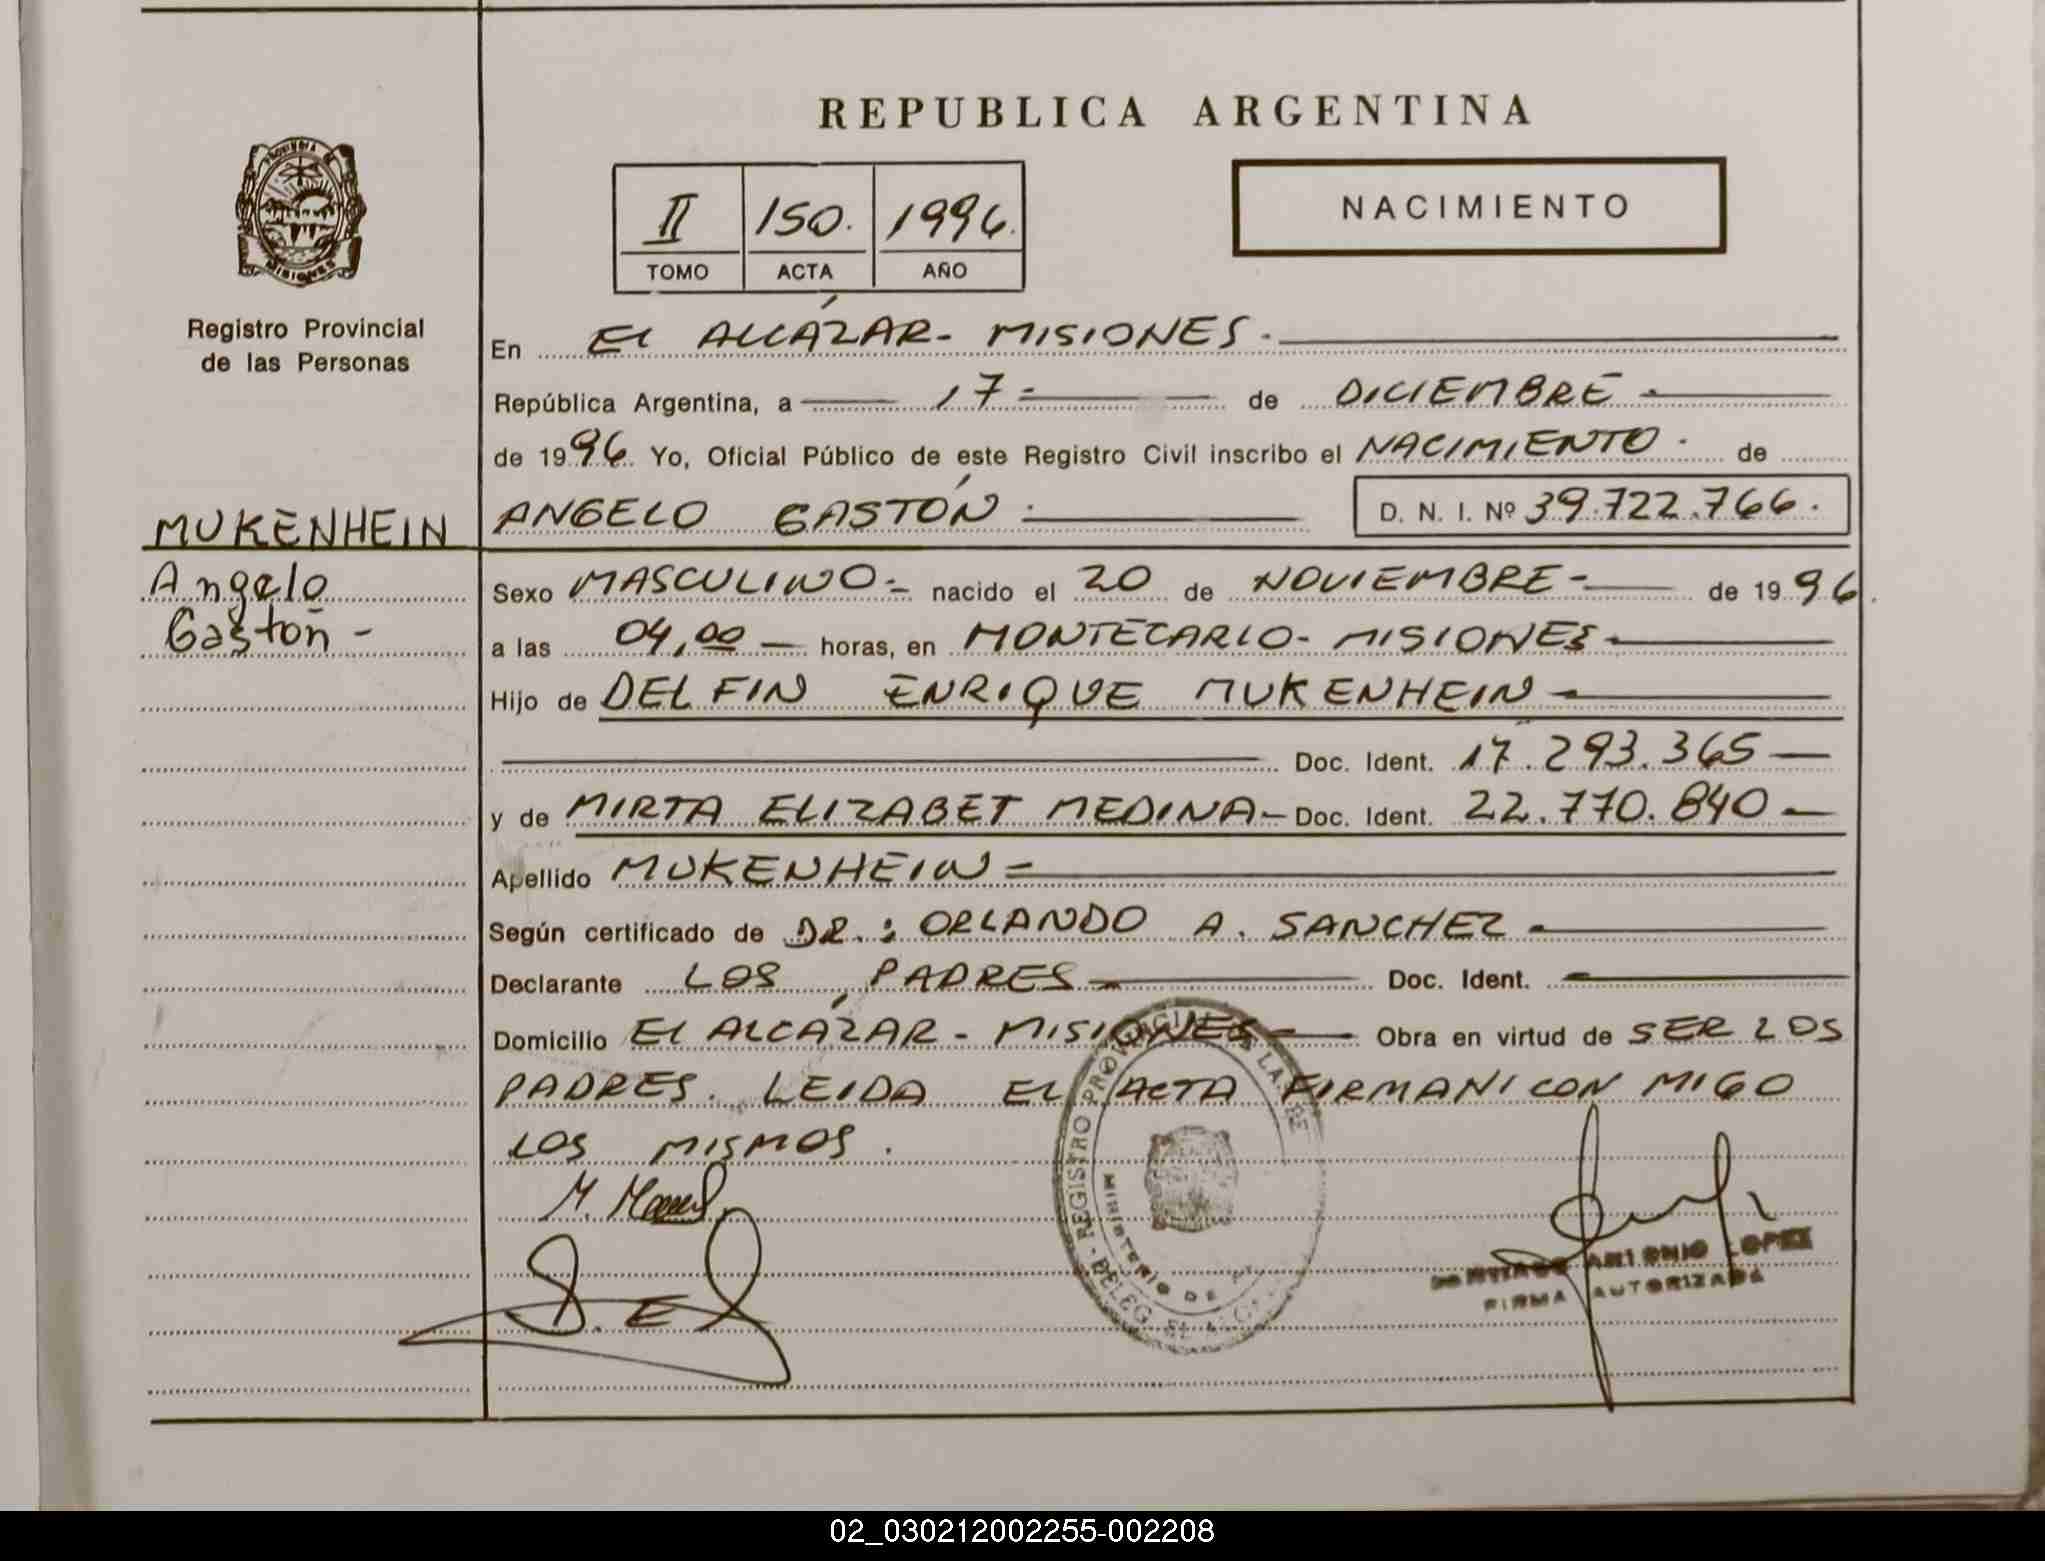 REPUBLICA ARGENTINA
PROVINCIA DE
MISIONES
Registro Provincial
de las Personas
II 150. 1996.
TOMO ACTA AÑO
NACIMIENTO
En EL ALCÁZAR - MISIONES.
República Argentina, a 17 - de DICIEMBRE
de 1996. Yo, Oficial Público de este Registro Civil inscribo el NACIMIENTO. de
ANGELO GASTÓN. D. N. I. Nº 39.722.766.
MUKENHEIN
Angelo
Gastón -
Sexo MASCULINO - nacido el 20 de NOVIEMBRE - de 1996.
a las 04,00 - horas, en MONTECARLO - MISIONES
Hijo de DELFIN ENRIQUE MUKENHEIN
Doc. Ident. 17.293.365
y de MIRTA ELIZABET MEDINA - Doc. Ident. 22.770.840
Apellido MUKENHEIN -
Según certificado de DR.: ORLANDO A. SANCHEZ
Declarante LOS PADRES Doc. Ident.
Domicilio EL ALCÁZAR - MISIONES - Obra en virtud de SER LOS
PADRES. LEIDA EL ACTA FIRMAN CON MIGO
LOS MISMOS.
REGISTRO PROVINCIAL DE LAS PE
MINISTERIO DE
DELEG. EL ALCA
ANTONIO LOPEZ
FIRMA AUTORIZADA
02_030212002255-002208